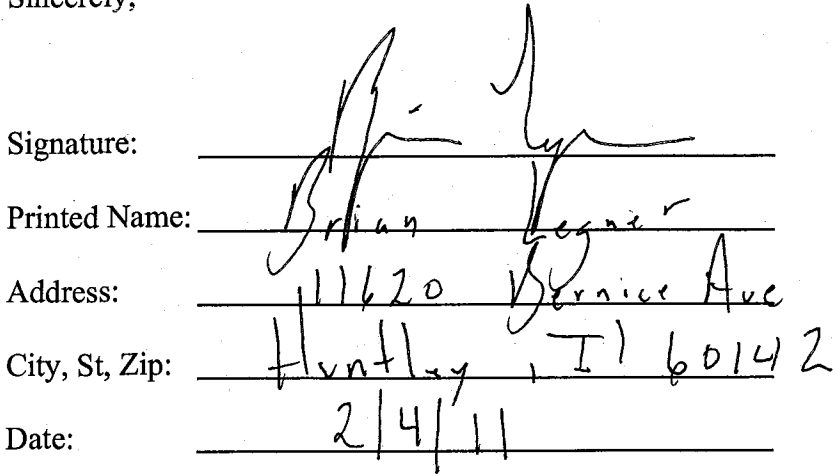 Sincerely,
Signature:
Printed Name: Brian Legner
Address: 11620 Bernice Ave
City, St, Zip: Huntley, Il 60142
Date: 2/4/11